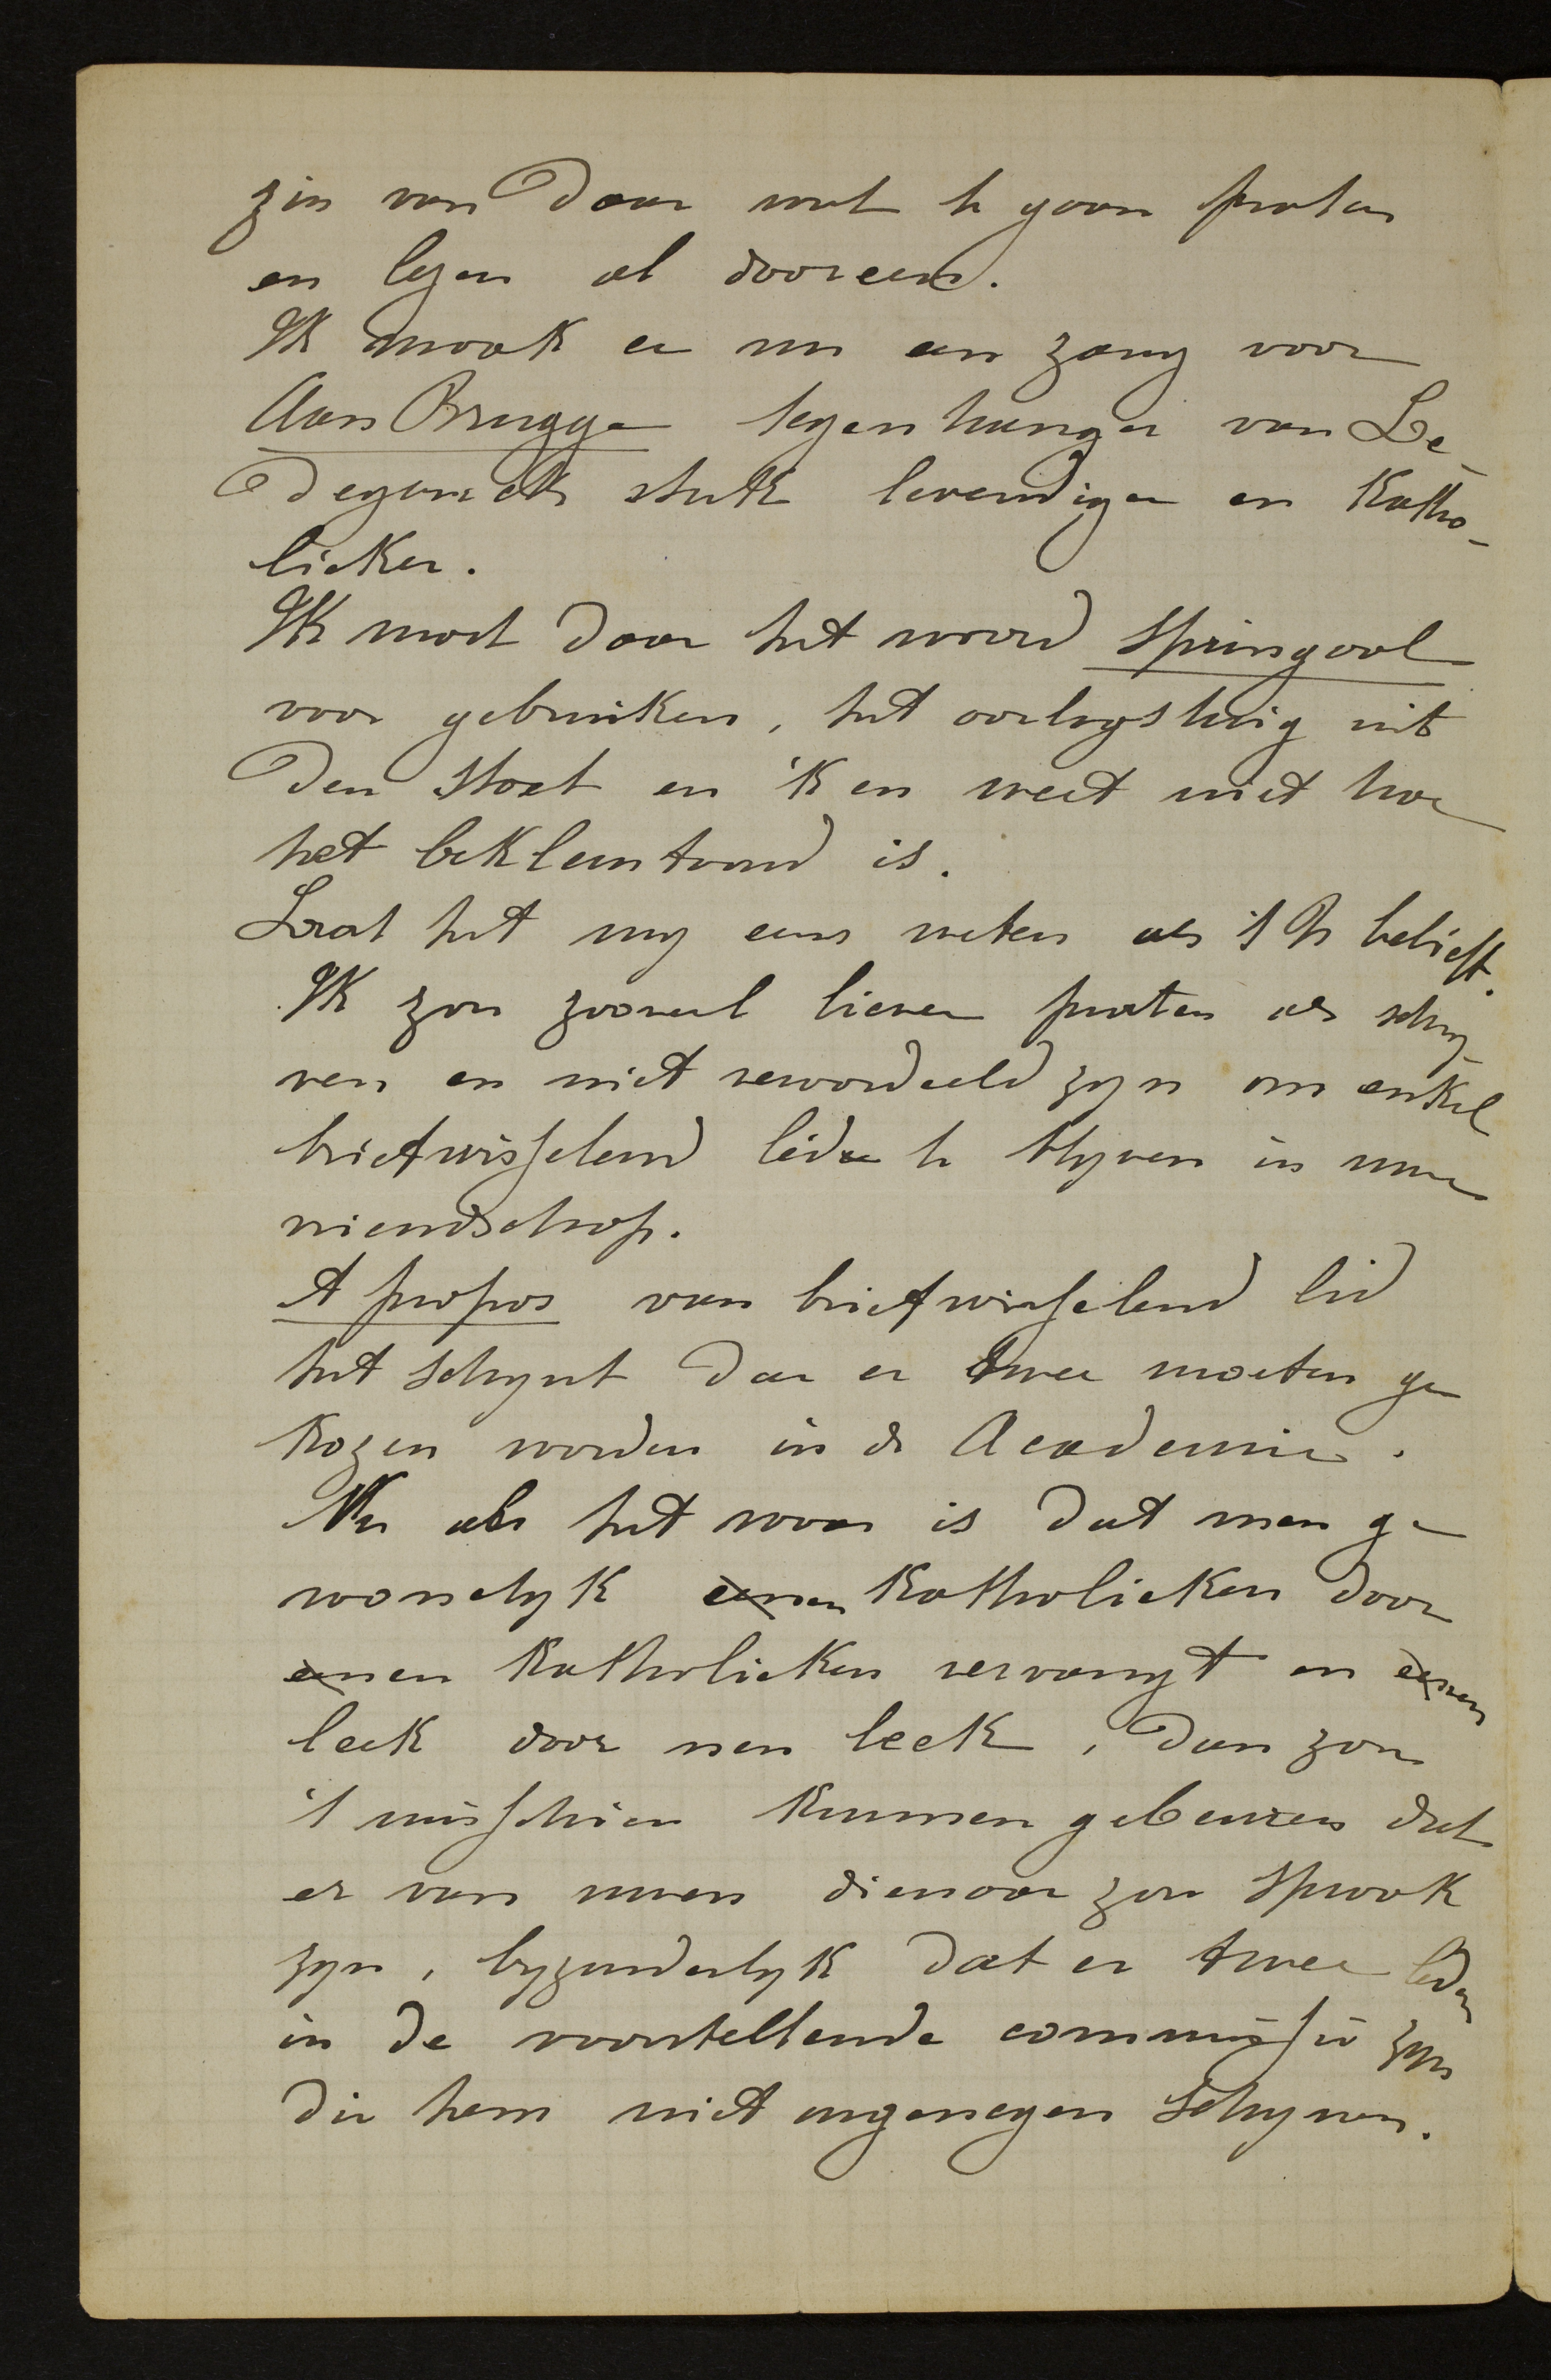 zin van daar wat te gaan praten
en lezen al dooreen.
Ik maak er nu een zang voor
Aan Brugge tegenhanger van Le-
degancks stuk levendiger en katho-
lieker.
Ik moet daar het woord springaal
voor gebruiken, het oorlogstuig uit
den stoet en 'k en weet niet hoe
het beklemtoond is.
Laat het my eens weten als 't U belieft.
Ik zou zooveel liever praten als schry-
ven en niet veroordeeld zyn om enkel
briefwisselend lid te blyven in uwe
vriendschap.
A propos van briefwisselend lid
het schynt dar er twee moeten ge
kozen worden in de Academie.
Nu als het waar is dat men ge
woonelyk eenen katholieken door
eenen katholieken vervangt en eenen
leek door nen leek, dan zou
't misschien kunnen gebeuren dat
er van uwen dienaar zou spraak
zyn, byzunderlyk dat er twee leden
in de voorstellende commissie zyn
die hem niet ongenegen schynen.